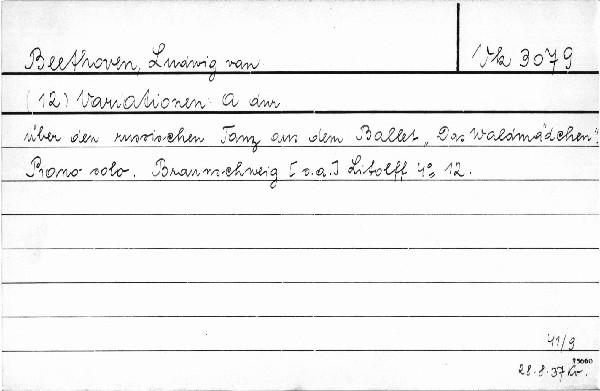 Beethoven, Ludwig van
Vk 3079
(12) Variationen A dur
über den russischen Tanz aus dem Ballet „Das Waldmädchen".
Piano solo. Braunschweig [o.a.] Litolff 4° 12.
41/9
35000
28.8.37 Kr.